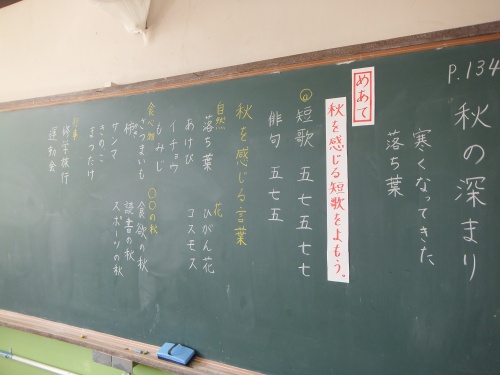 P.134
秋の深まり
寒くなってきた
落ち葉
めあて
秋を感じる短歌をよもう。
短歌 五七五七七
俳句 五七五
秋を感じる言葉
自然
花
落ち葉
ひがん花
あけび
コスモス
イチョウ
もみじ
食べ物
〇〇の秋
さつまいも
食欲の秋
柿
読書の秋
サンマ
スポーツの秋
きのこ
まつたけ
行事
修学旅行
運動会